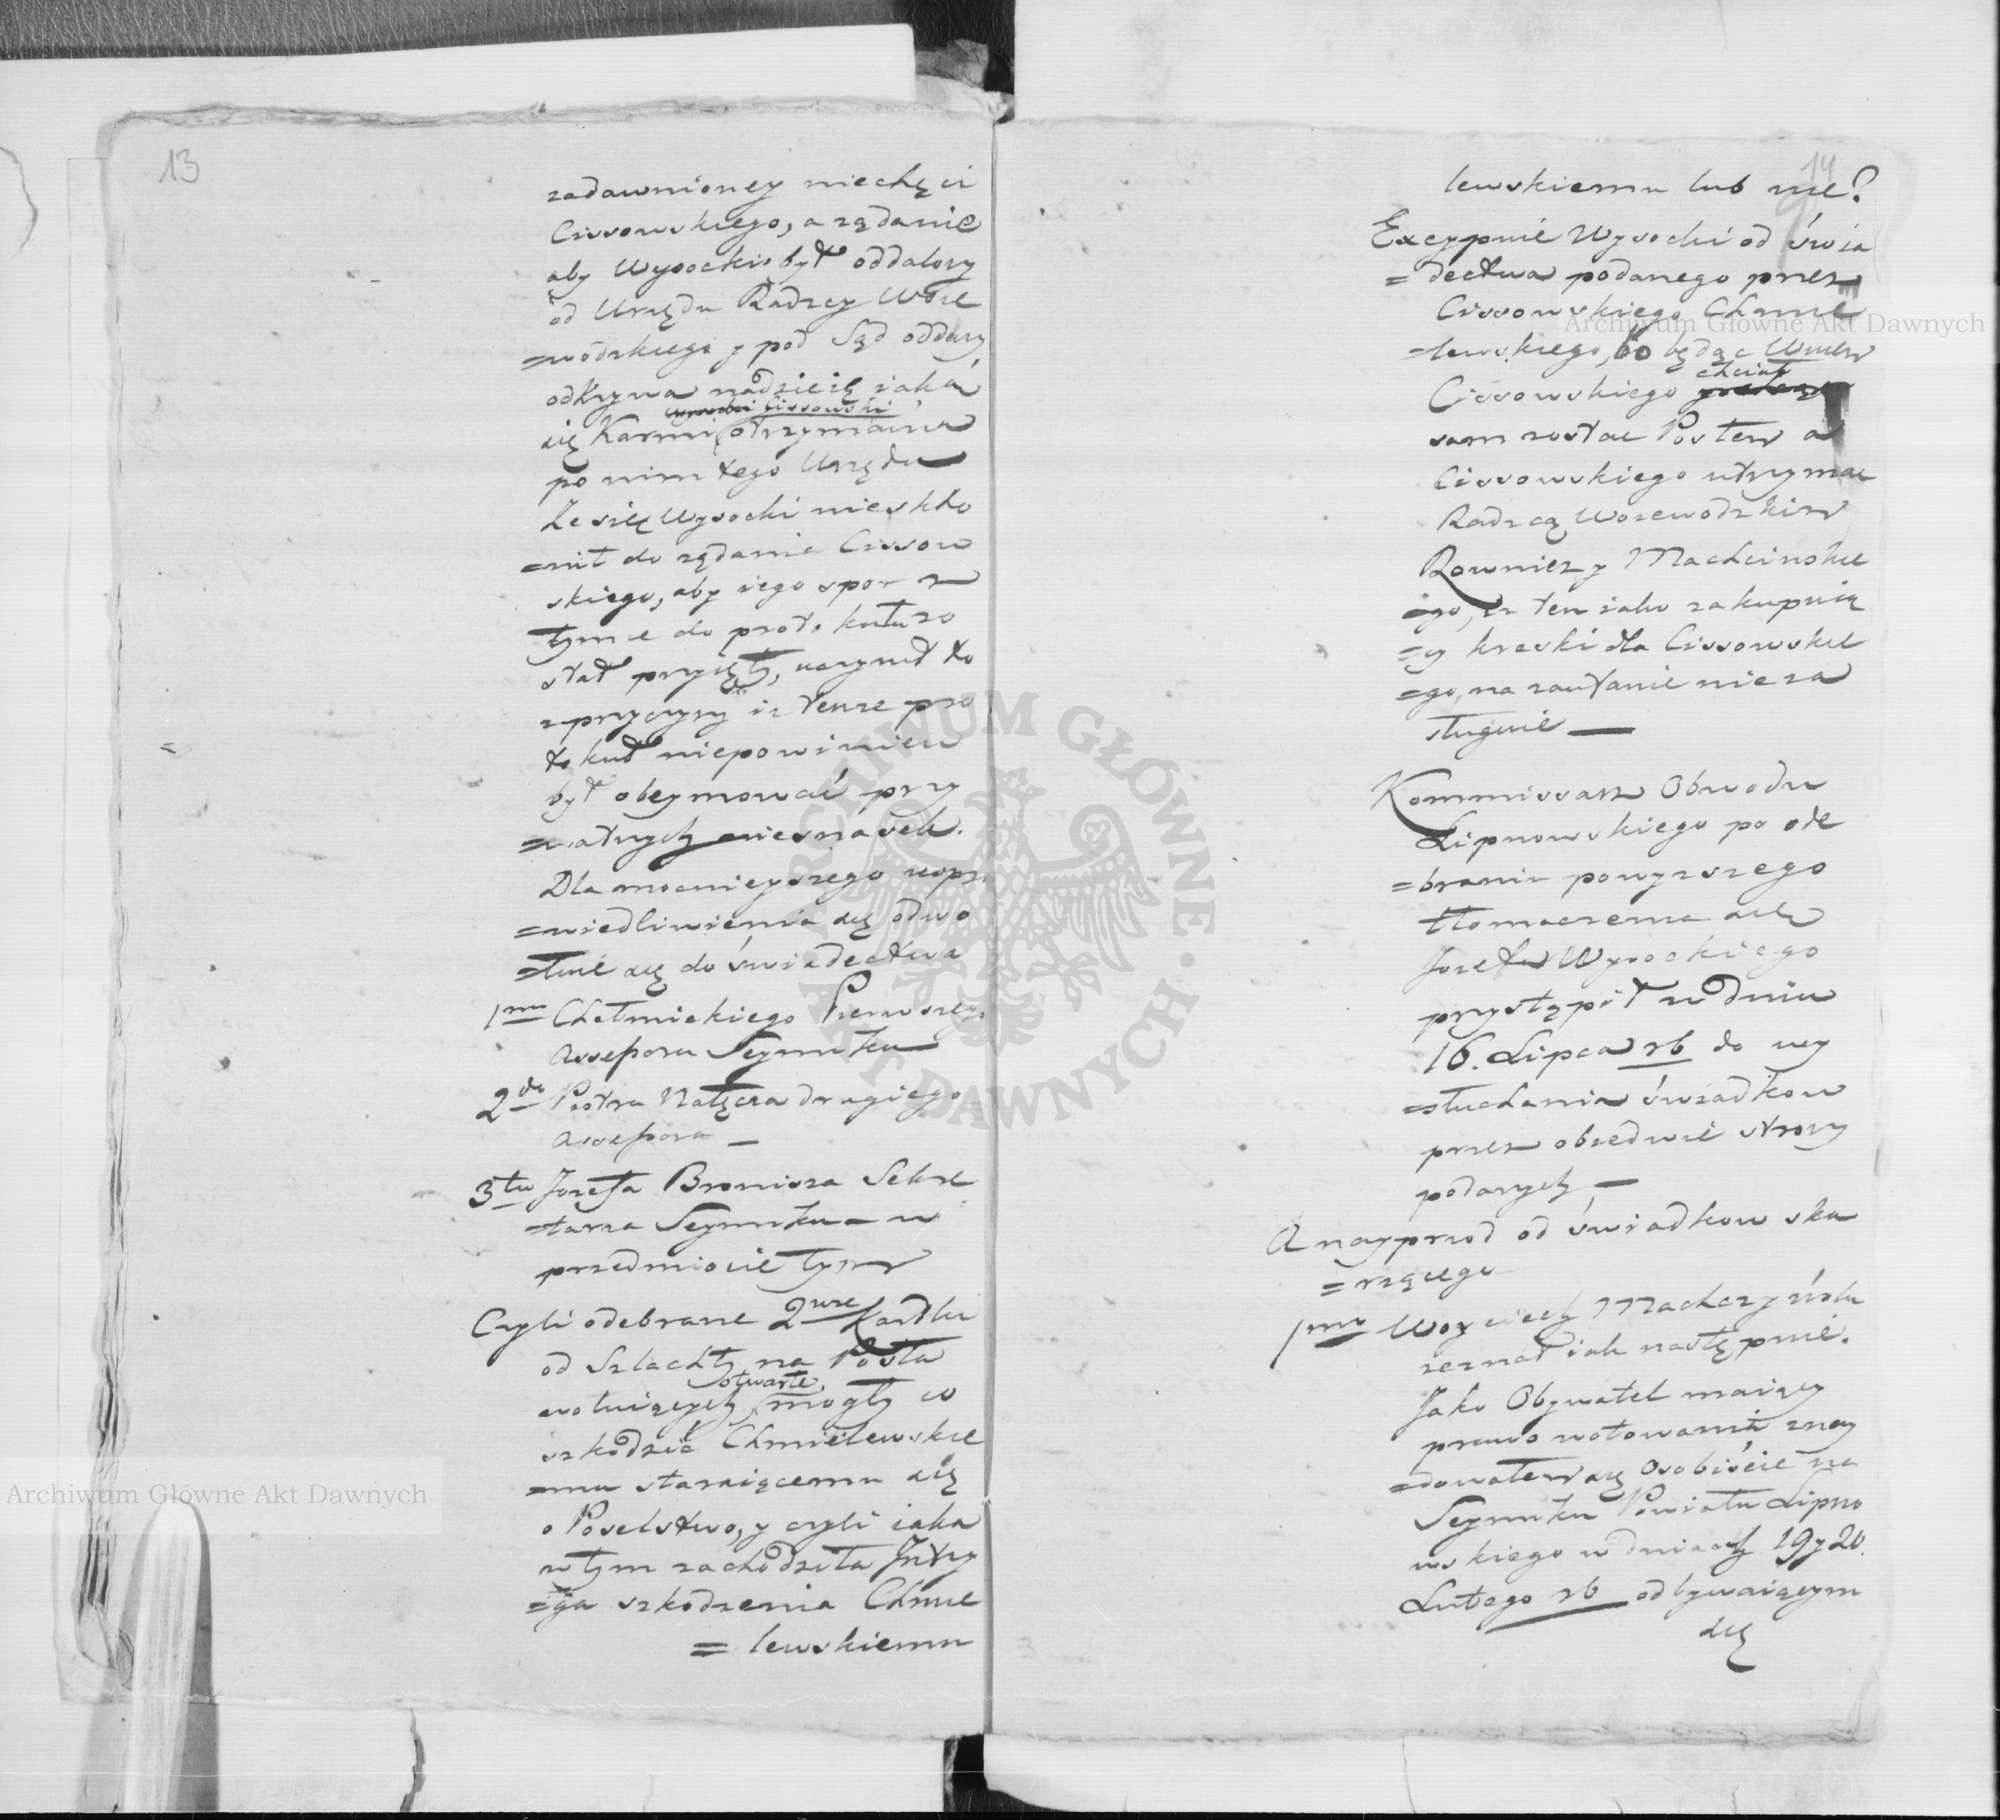 13
zadawnioney niechęci
Cissowskiego, a rządanie
aby Wysocki był oddalony
od Urzędu Radzcy Woie
=wodzkiego y pod Sąd oddany
odkrywa nadzieię iaką
Cissowski
się Karmi otrzymania
po nim tego Urzędu
Że się Wysocki nieskło
=nił do rządania Cissow
skiego, aby iego spor z
tymże do protokułu zo
stał przyięty, uczynił to
z przyczyny iż tenże pro
tokuł niepowinien
był obeymować pry
=watnych niesnasek.
Dla mocnieyszego uspra
=wiedliwienia się odwo
=łuie się do świadectwa
1mo Chełmickiego Pierwszego
Assessora Seymiku
2do Piotra Nałęcza drugiego
Assessora —
3tio Jozefa Bronisza Sekre
=tarza Seymiku — w
przedmiocie tym
Czyli odebrane 2wie Kartki
od Szlachty na Posła
otwarte
wotuiących, mogły co
szkodzić Chmielewskie
=mu staraiącemu się
o Poselstwo, y czyli iaka
w tym zachodziła Intry
=ga szkodzenia Chmie
= lewskiemu
14
lewskiemu lub nie?
Excypuie Wysocki od świa
=dectwa podanego przez
Cissowskiego Chmie
=lewskiego, bo będąc
chciał
Cissowskiego
sam zostać Posłem a
Cissowskiego utrzymać
Radzcą Woiewodzkim
Rownież y Machcinskie
=go, iż ten iako zakupuią
=cy kreski dla Cissowskie
=go, na zaufanie nieza
sługuie —
Kommissarz Obwodu
Lipnowskiego po ode
=braniu powyższego
tłomaczenia się
Jozefa Wysockiego
przystąpił w dniu
16. Lipca rb do wy
=słuchania świadkow
przez obiedwie strony
podanych —
A nayprzod od świadkow ska
=rzącego
1mo Woyciech Machczyński
zeznał iak następuie.
Jako Obywatel maiący
prawo wotowania znay
=dowałem się Osobiście na
Seymiku Powiatu Lipno
wskiego w dniach 19 y 20.
Lutego rb odbywaiącym
się
Archiwum Główne Akt Dawnych
Archiwum Główne Akt Dawnych
ARCHIWUM GŁÓWNE · AKT DAWNYCH ·